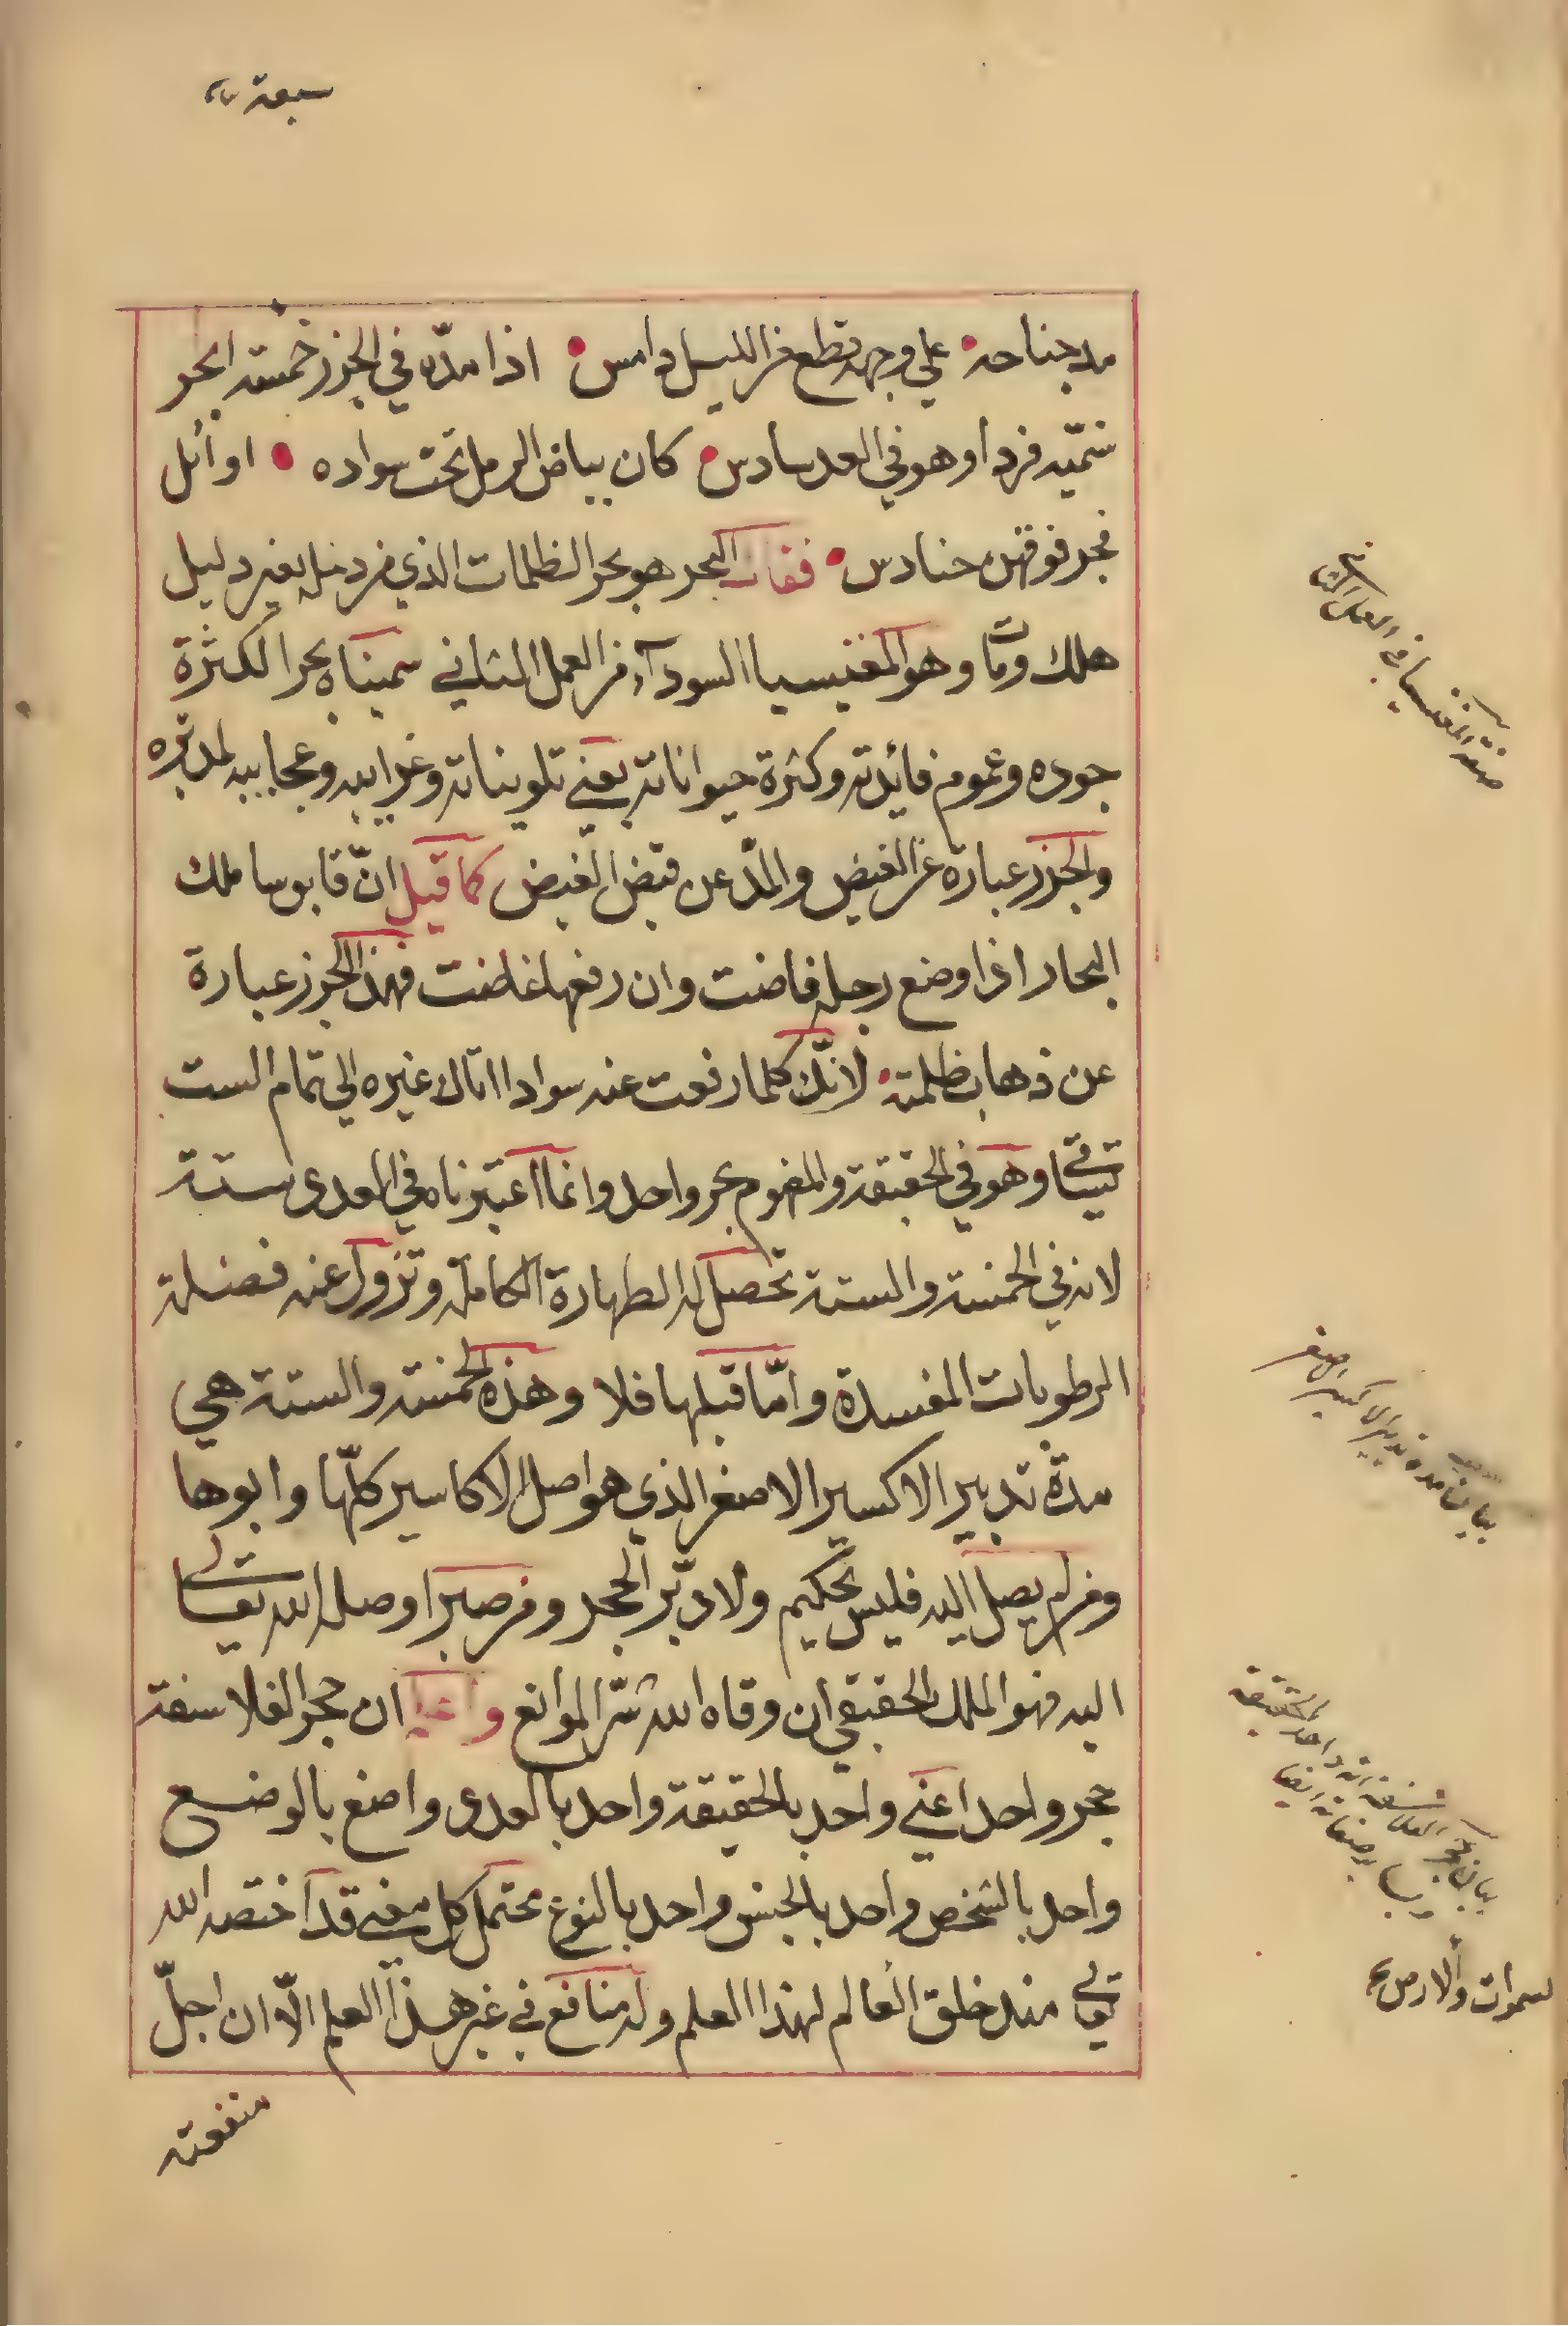 سبعة
مد جناحه على وجهه قطع من الليل دامس اذا مدّه في الجزر خمسة ابحر
نتمّيه فردا وهو في العد سادس كان بياض الرمل تحت سواده اوائل
فجر فوقهن حنادس فقال البحر هو بحر الظلمات الذي من دخله بغير دليل
هلك ومات وهو المغنيسيا السودآء من العمل الثاني سميناه بحرا لكثرة
جوده وعموم فائدته وكثرة حيواناته يعني تلويناته وغرايبه وعجايبه لمدبّره
والجزر عبارة عن الغيض والمدّ عن فيض الغيض كما قيل انّ قابوسا ملك
البحار اذا وضع رجله فاضت وان رفعها غاضت فهذ الجزر عبارة
عن ذهاب ظلمته لانّك كلما رفعت عنه سوادا اتاك غيره الى تمام الست
تيساقي وهو في الحقيقة والمفهوم بحر واحد وانما اعتبرناه في العدد ستة
لانه في الخمسة والستة تحصل له الطهارة الكاملة وتزول عنه فضلة
الرطوبات المفسدة وامّا قبلها فلا وهذه الخمسة والستة هي
مدة تدبير الاكسير الاصغر الذي هو اصل الاكاسير كلّها وابوها
ومن لم يصل اليه فليس بحكيم ولا دبّر الحجر ومن صبر اوصله الله تعالى
اليه فهو الملك الحقيقي ان وقاه الله شرّ الموانع واعلم ان حجر الفلاسفة
حجر واحد اعني واحد بالحقيقة واحد بالعدد واضع بالوضع
واحد بالشخص واحد بالجنس واحد بالنوع محتمل كل معنى قد اختصه الله
تعالى منذ خلق العالم لهذا العلم وله منافع في غير هذا العلم الّا ان اجلّ
منفعته
صفة المغنيسيا في العمل الثاني
بيان مدة تدبير الاكسير الاصغر
بيان حجر الفلاسفة انه واحد بالحقيقة
لسموات والارض